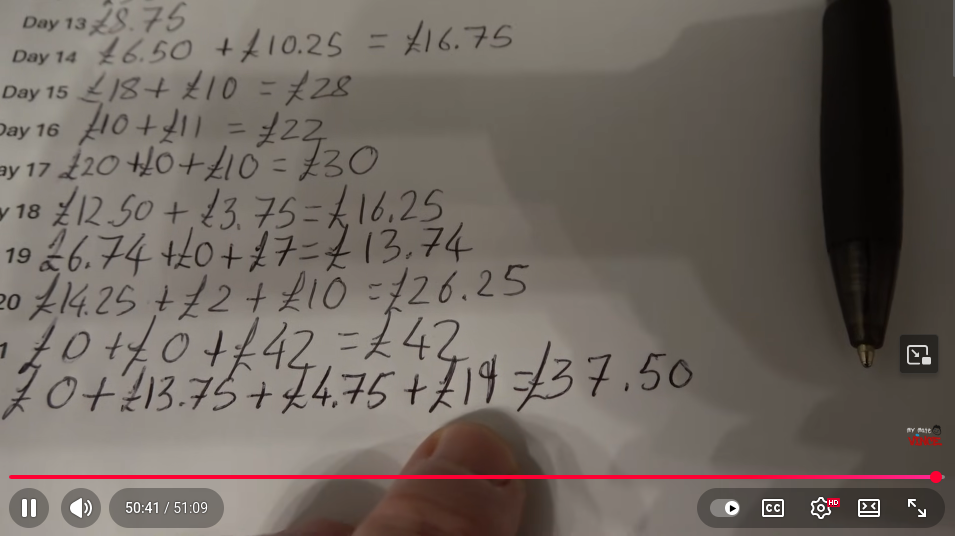 Day 13 £8.75
Day 14 £6.50 + £10.25 = £16.75
Day 15 £18 + £10 = £28
Day 16 £10 + £11 = £22
ay 17 £20 + £0 + £10 = £30
y 18 £12.50 + £3.75 = £16.25
19 £6.74 + £0 + £7 = £13.74
20 £14.25 + £2 + £10 = £26.25
1 £0 + £0 + £42 = £42
£0 + £13.75 + £4.75 + £19 = £37.50
50:41 / 51:09
CC
HD